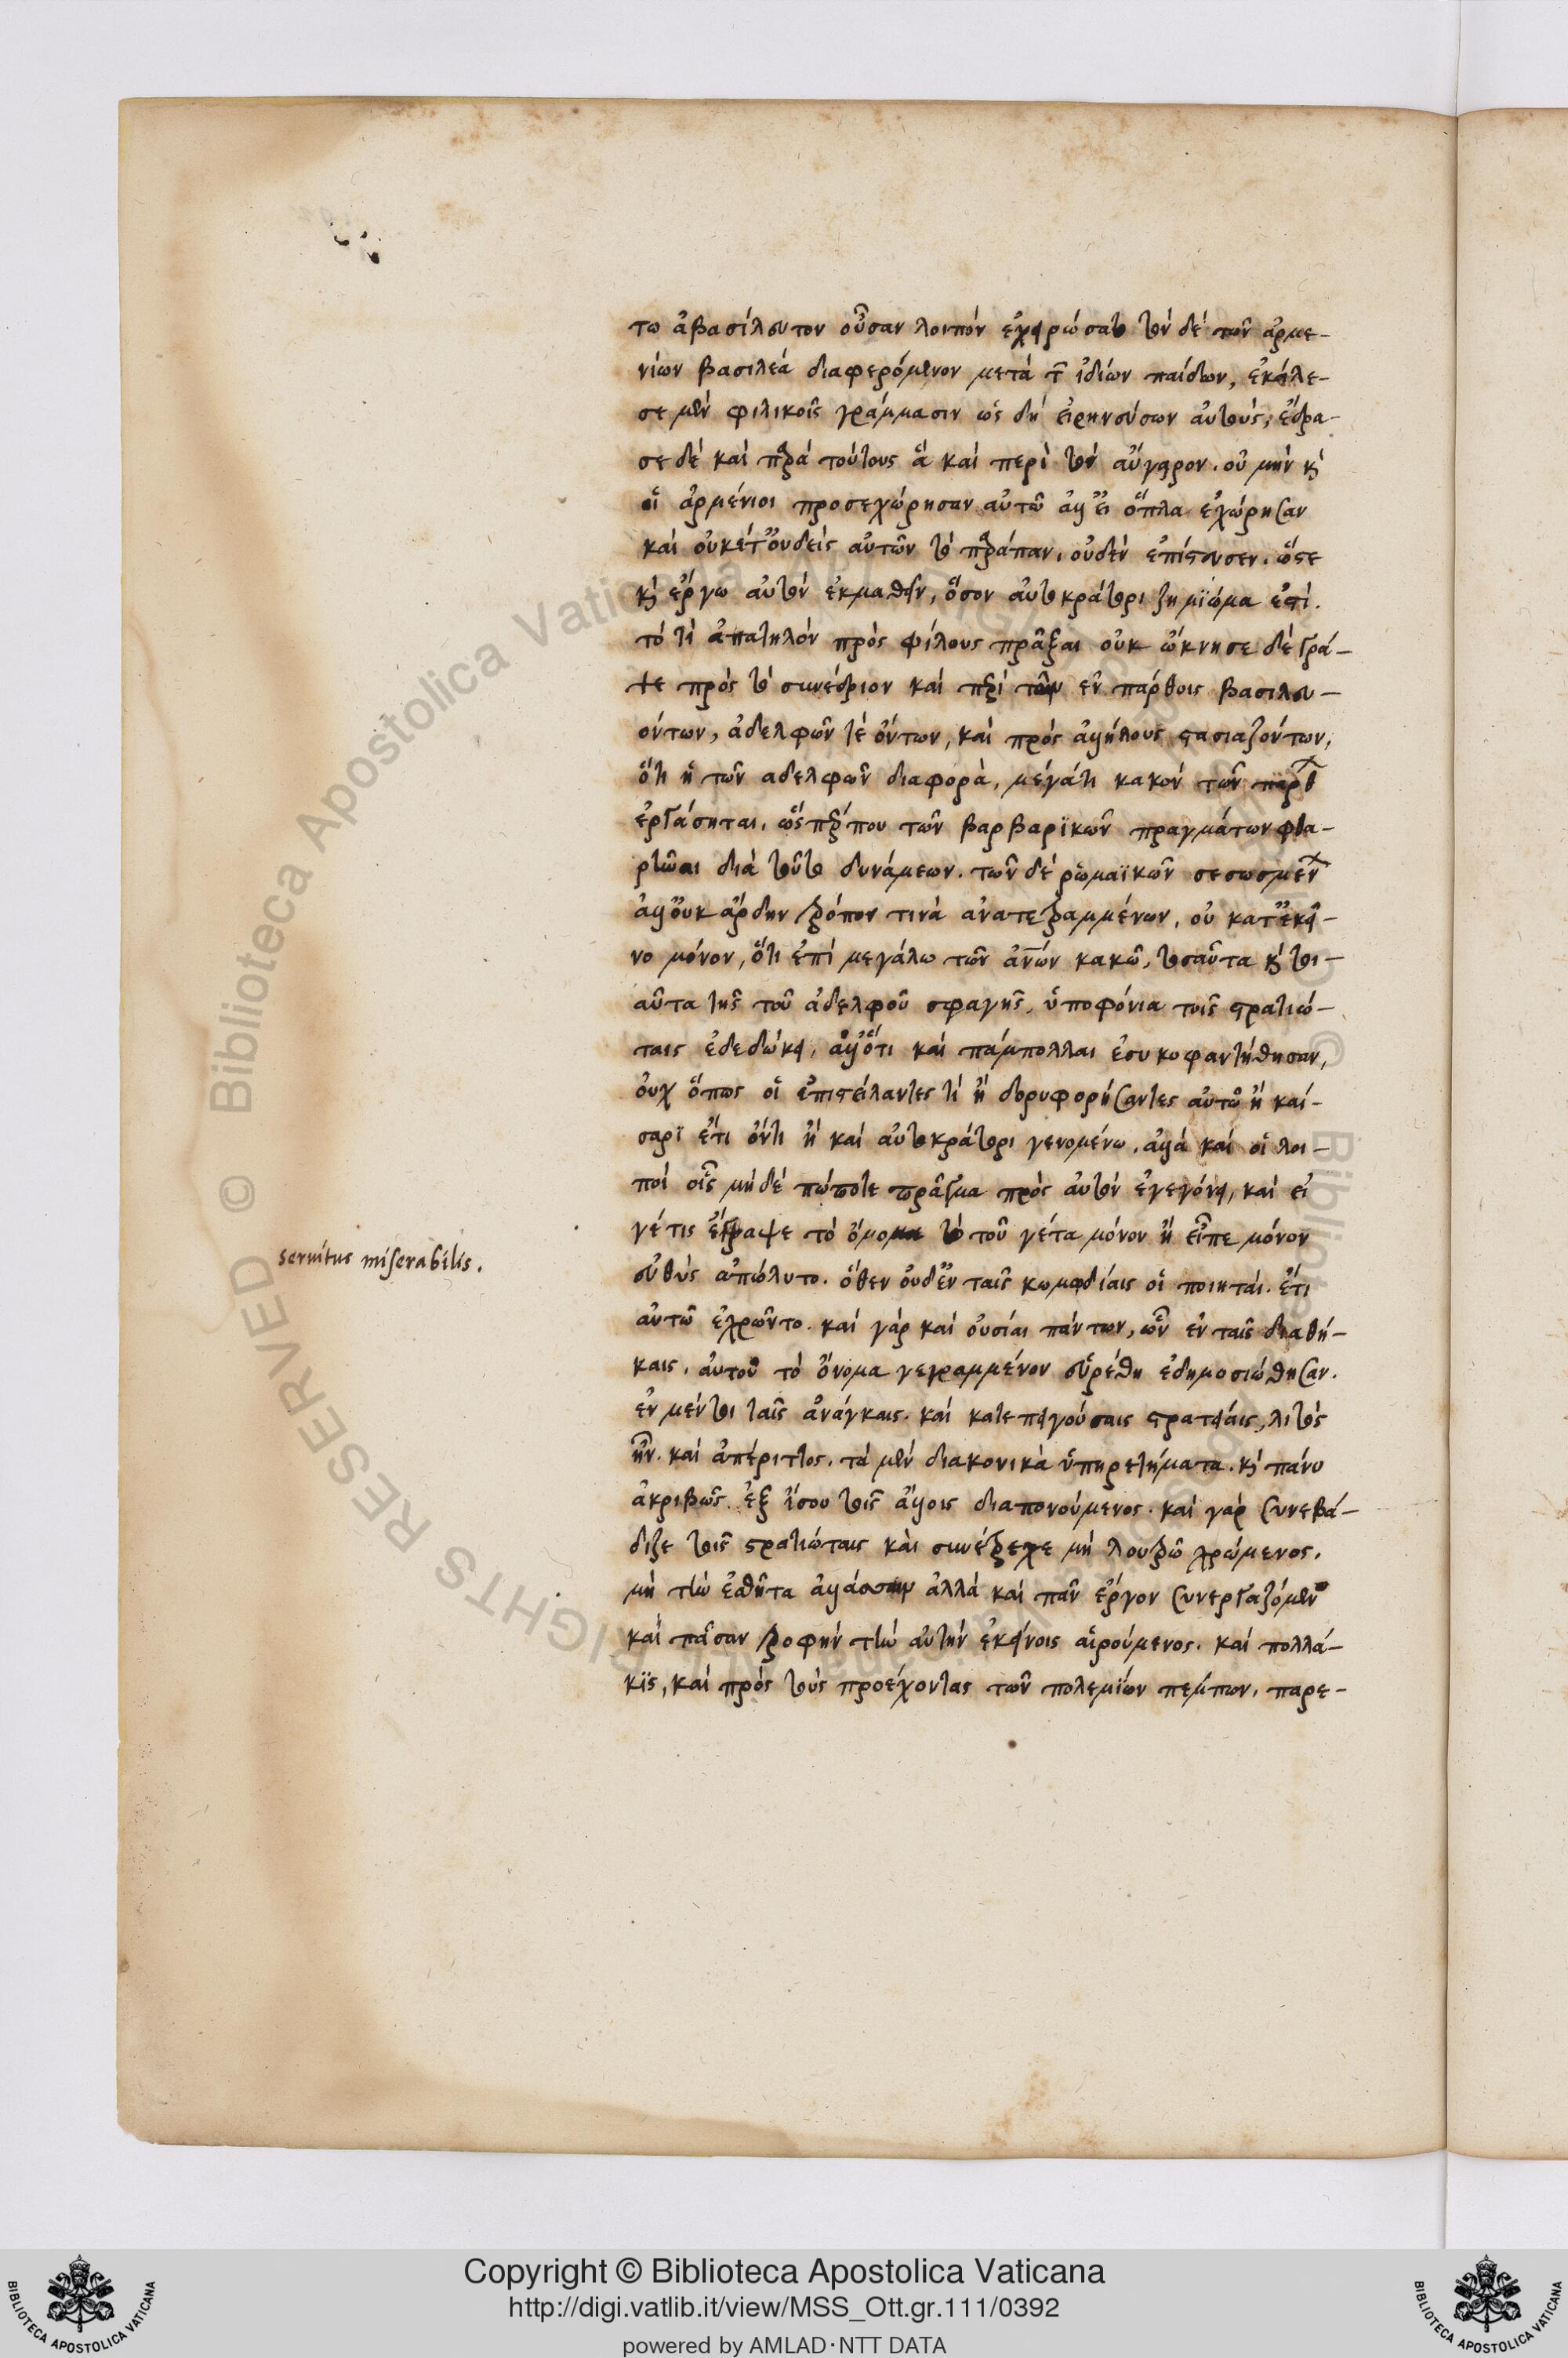 τω ἀβασίλευτον οὖσαν λοιπὸν ἐχειρώσατο τὸν δὲ τῶν ἀρμε-
νίων βασιλέα διαφερόμενον μετὰ τ̃ ἰδίων παίδων, ἐκάλε-
σε μὲν φιλικοῖς γράμμασιν ὡς δὴ εἰρηνεύσων αὐτούς, ἔδρα-
σε δὲ καὶ περὶ τούτους ἃ καὶ περὶ τὸν αὔγαρον. οὐ μὴν κ̀
οἱ ἀρμένιοι προσεχώρησαν αὐτῶ ἀλλ' εἰ ὅπλα ἐχώρησαν
καὶ οὐκέτ' οὐδεὶς αὐτῶν τὸ παράπαν. οὐδὲν ἐπίστευσεν. ὥστε
κ̀ ἔργω αὐτὸν ἐκμαθεῖν, ὅσον αὐτοκράτορι ζημίωμα ἐστὶ.
τό τι ἀπατηλὸν πρὸς φίλους πρᾶξαι οὐκ ὤκνησε δὲ γρά-
ψε πρὸς τὸ συνέδριον καὶ περὶ τῶν ἐν πάρθοις βασιλευ-
όντων, ἀδελφῶν τὲ ὄντων, καὶ πρὸς ἀλλήλους στασιαζόντων,
ὅτι ἡ τῶν αδελφῶν διαφορὰ, μέγά τι κακὸν τῶν παρθ
ἐργάσηται. ὥσπερ που τῶν βαρβαρϊκῶν πραγμάτων φθα-
ρῆναι διὰ τοῦτο δυνάμεων. τῶν δὲ ῥωμαϊκῶν σεσωσμέν
ἀλλ' οὐκ ἄρδην τρόπον τινὰ ἀνατετραμμένων, οὐ κατ' ἐκεῖ-
νο μόνον, ὅτι ἐπὶ μεγάλω τῶν ἀν̅ων κακῶ, τοσαῦτα κ̀ τοι-
αῦτα τῆς τοῦ ἀδελφοῦ σφαγῆς. ὑποφόνια τοῖς στρατιώ-
ταις ἐδεδώκει, ἀλλ' ὅτι καὶ πάμπολλαι ἐσυκοφαντήθησαν,
οὐχ ὅπως οἱ ἐπιστείλαντές τι ἢ δορυφορήσαντες αὐτῶ ἢ καί-
σαρϊ ἔτι ὄντι ἢ καὶ αὐτοκράτορι γενομένω. ἀλλὰ καὶ οἱ λοι-
ποὶ οἷς μηδὲ πώποτε πρᾶγμα πρὸς αὐτὸν ἐγεγόνει, καὶ εἴ
γέ τις ἔγραψε τὸ ὄνομα τὸ τοῦ γέτα μόνον ἢ εἶπε μόνον
εὐθὺς ἀπώλυτο. ὅθεν οὐδ' ἐν ταῖς κωμωδίαις οἱ ποιηταὶ. ἔτι
αὐτῶ ἐχρῶντο. καὶ γὰρ καὶ οὐσίαι πάντων, ὧν ἐν ταῖς διαθή-
καις. αὐτοῦ τὸ ὄνομα γεγραμμένον εὑρέθη ἐδημοσιώθησαν.
ἐν μέντοι ταῖς ἀνάγκαις. καὶ κατεπειγούσαις στρατείαις, λιτὸς
ἦν. καὶ ἀπέριττος. τὰ μὲν διακονικὰ ὑπηρετήματα. κ̀ πάνυ
ἀκριβῶς. ἐξ ἴσου τοῖς ἄλλοις διαπονούμενος. καὶ γὰρ συνεβά-
διζε τοῖς στρατιώταις καὶ συνέτρεχε μὴ λουτρῶ χρώμενος.
μὴ τὴν ἐσθῆτα ἀλλάσσων ἀλλὰ καὶ πᾶν ἔργον συνεργαζόμεν
καὶ πᾶσαν τροφὴν τὴν αὐτὴν ἐκείνοις αἱρούμενος. καὶ πολλά-
κϊς, καὶ πρὸς τοὺς προέχοντας τῶν πολεμίων πέμπων. παρε-
seruitus miserabilis.
Copyright © Biblioteca Apostolica Vaticana
http://digi.vatlib.it/view/MSS_Ott.gr.111/0392
powered by AMLAD·NTT DATA